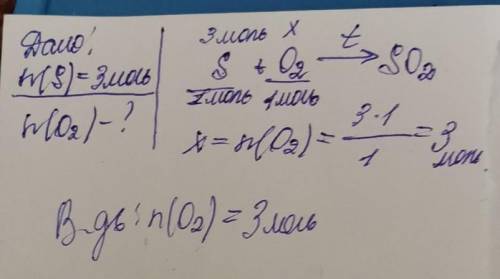 Дано:
n(S)=3моль
n(O₂)-?
3моль x
S + O₂ →t SO₂
1моль 1моль
x = n(O₂) = 3·1/1 = 3 моль
В-дь: n(O₂) = 3моль